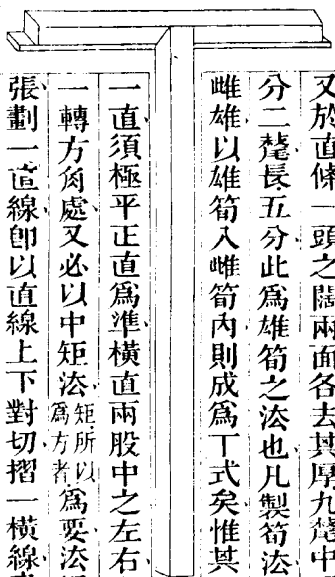 又於直條一頭之闊兩面各去其厚九氂中
分二氂長五分此爲雄筍之法也凡製筍法
雌雄以雄筍入雌筍內則成爲丁式矣惟其
一直須極平正直爲準橫直兩股中之左右
一轉方角處又必以中矩法矩所以爲方者爲要法
張劃一直線卽以直線上下對切摺一橫線